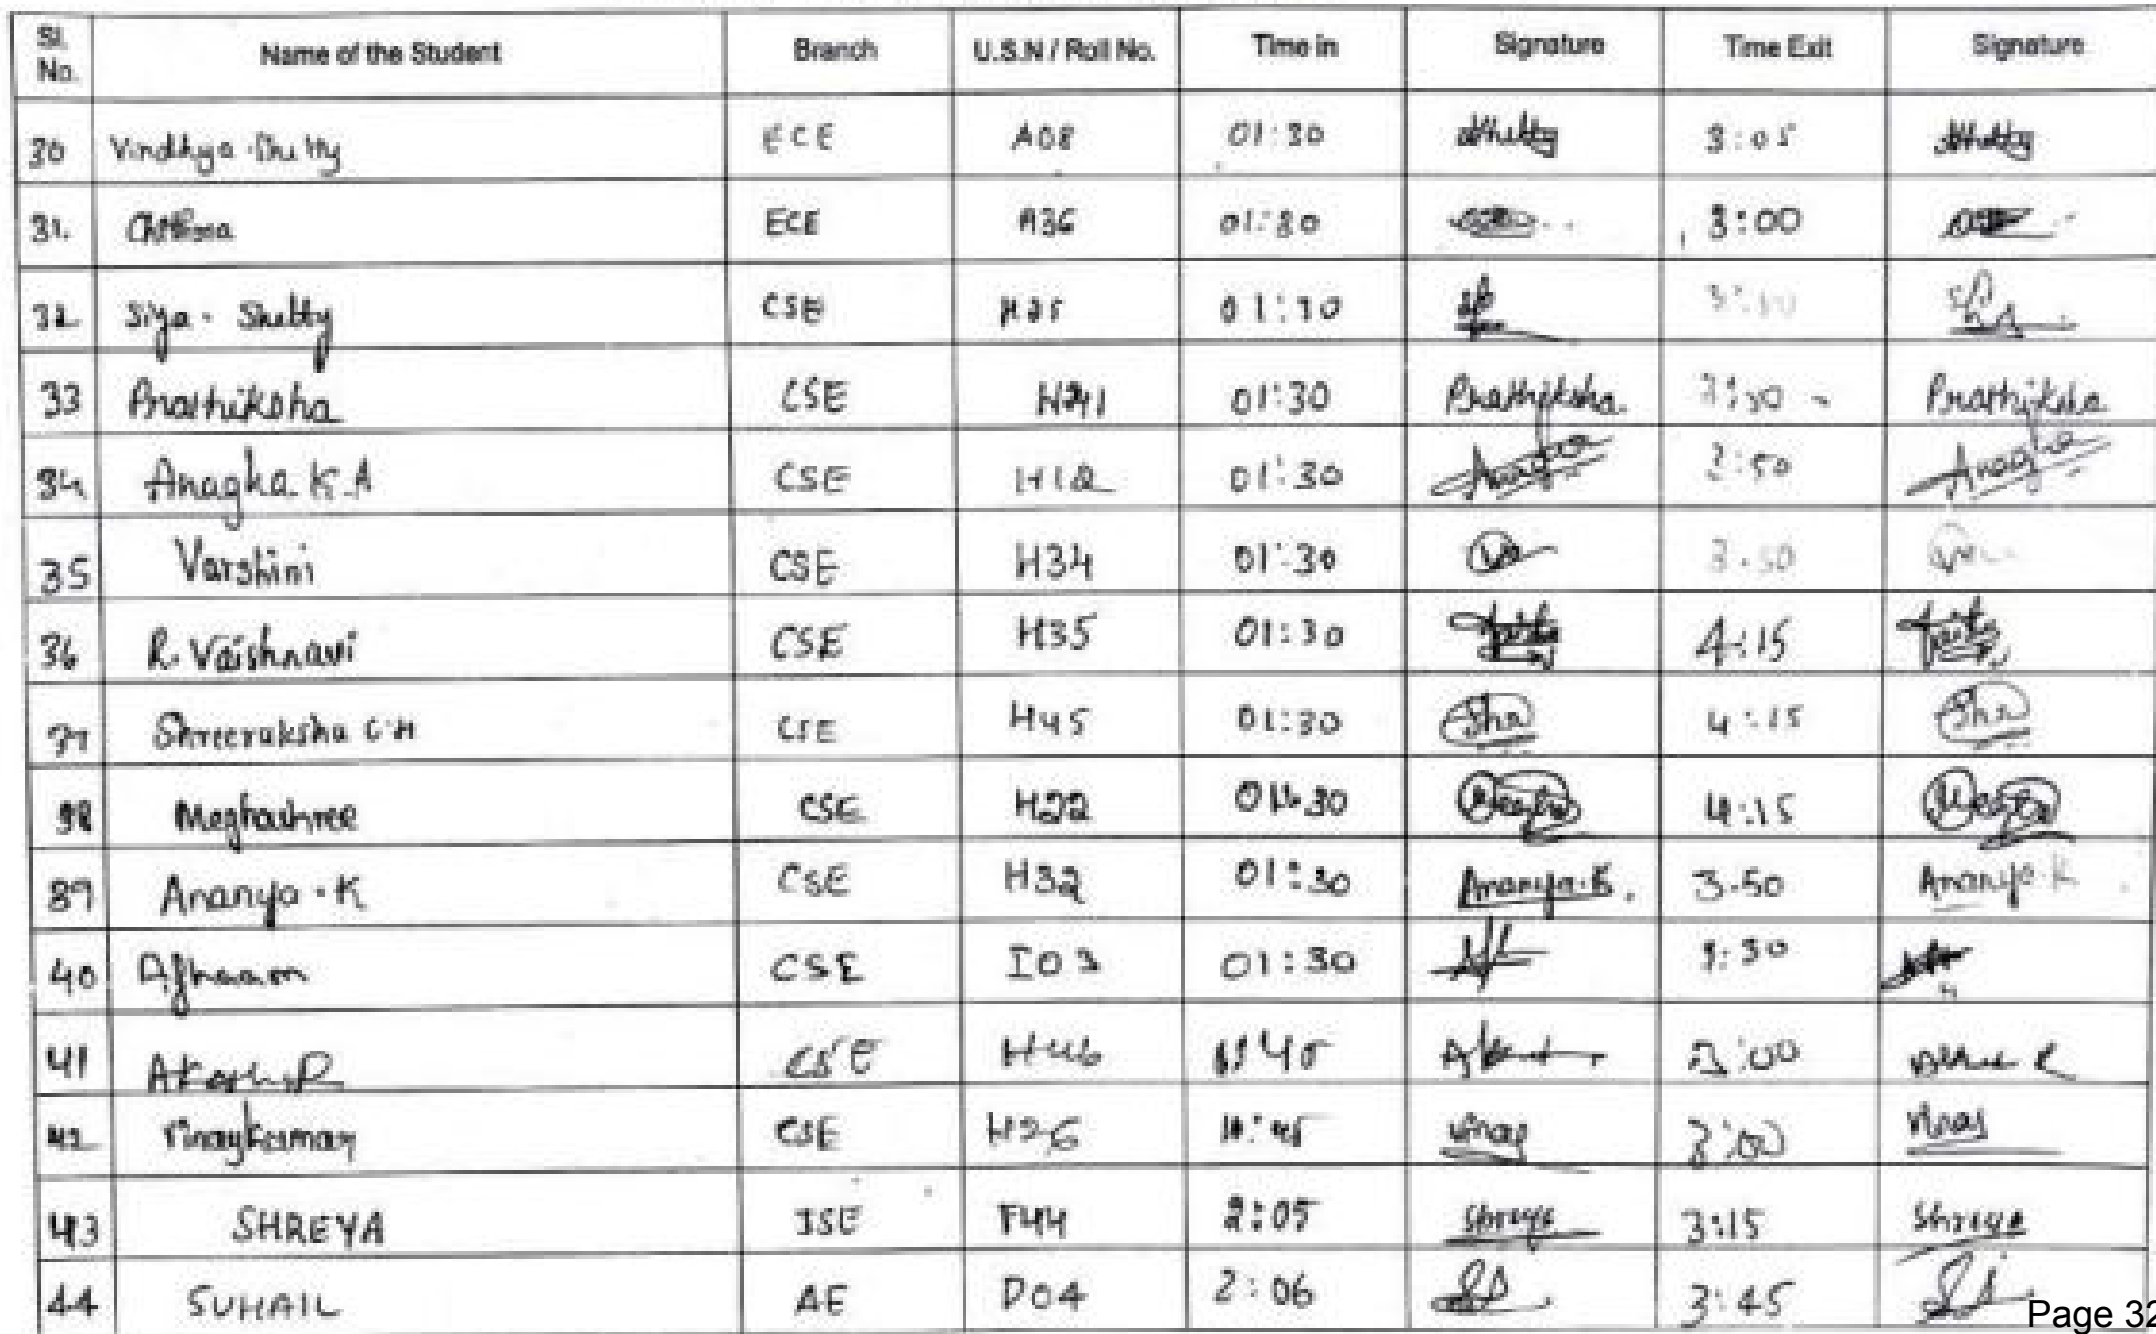 Sl. No. Name of the Student Branch U.S.N / Roll No. Time in Signature Time Exit Signature
30 Vindhya Shetty ECE A08 01:30 Shetty 3:05 Shetty
31. ECE A36 01:30 3:00
32 Siya - Shetty CSE H25 01:30
33 Prathiksha CSE 01:30 Prathiksha 3:50 Prathiksha
34 Anagha K.A CSE H12 01:30 Anagha 2:50 Anagha
35 Varshini CSE H34 01:30 3.50
36 R. Vaishnavi CSE H35 01:30 4:15
37 Shreeraksha C H CSE H45 01:30 Sha 4:15 Sha
38 Meghashree CSE H22 01:30 Megha 4:15 Megha
39 Ananya - K CSE H32 01:30 Ananya.K. 3.50 Ananya K
40 CSE I03 01:30 3:30
41 Akash.P CSE H46 3:00
42 Vinaykumar CSE H26 Vinay 3:00 Vinay
43 SHREYA ISE F44 2:05 Shreya 3:15 Shreya
44 SUHAIL AE D04 2:06 3:45
Page 32